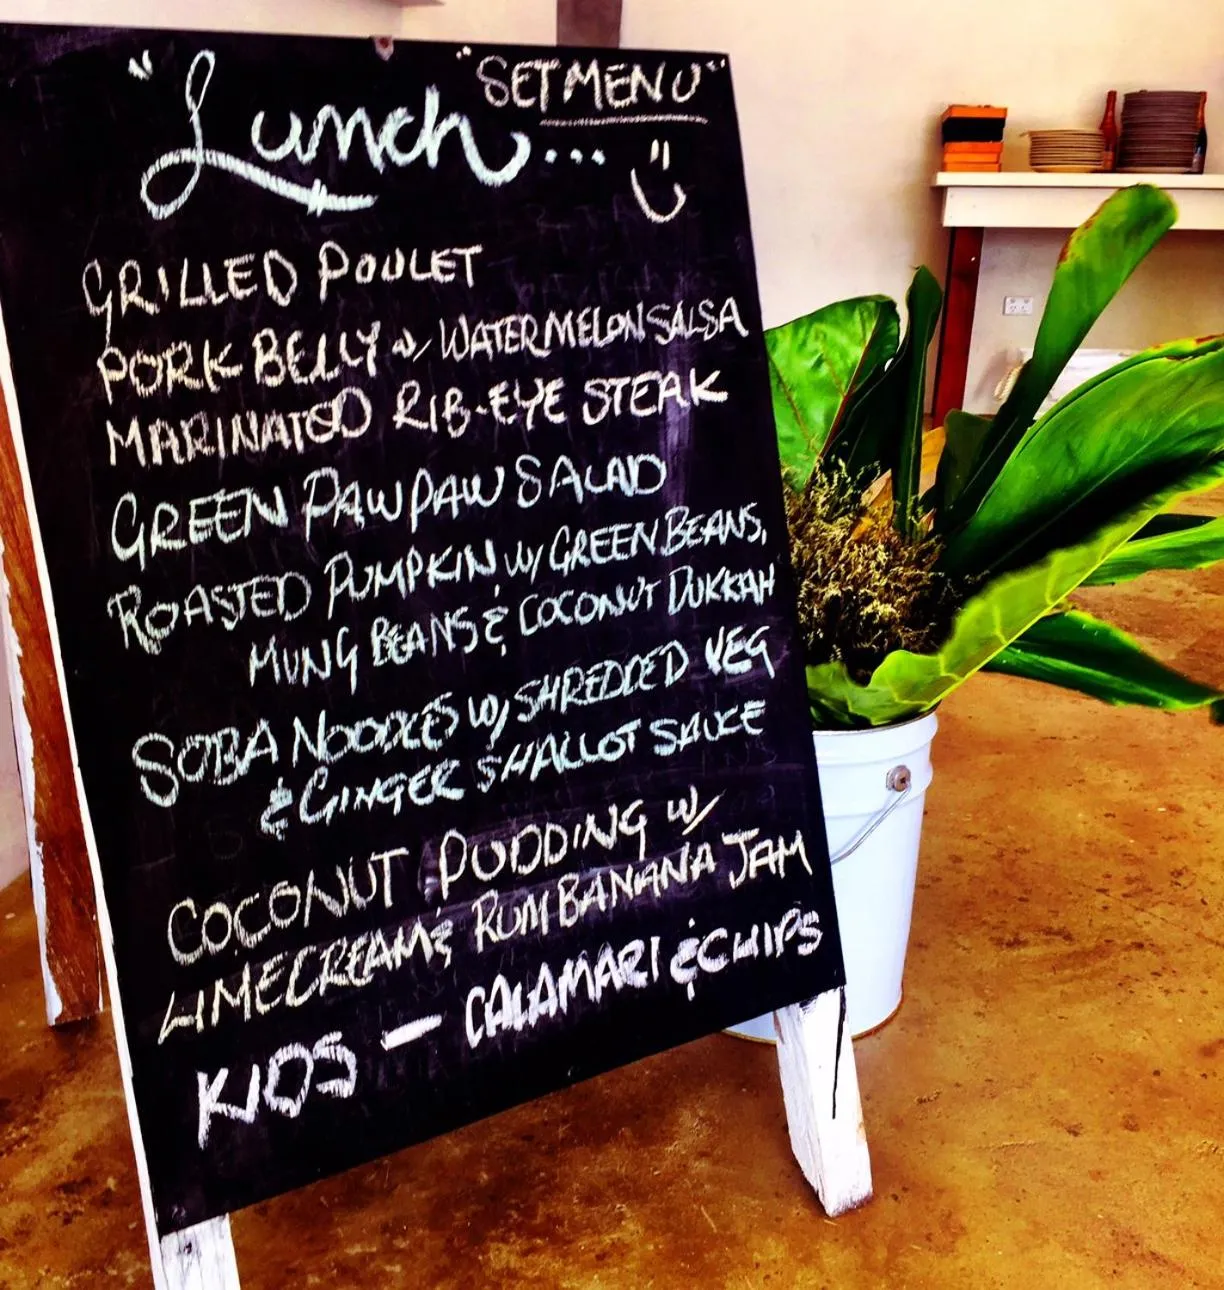 "Lunch... "SET MENU"
GRILLED POULET
PORK BELLY w/ WATERMELON SALSA
MARINATED RIB-EYE STEAK
GREEN PAWPAW SALAD
ROASTED PUMPKIN w/ GREEN BEANS,
MUNG BEANS & COCONUT DUKKAH
SOBA NOODLES w/ SHREDDED VEG
& GINGER SHALLOT SAUCE
COCONUT PUDDING w/
LIMECREAM & RUM BANANA JAM
KIDS - CALAMARI & CHIPS